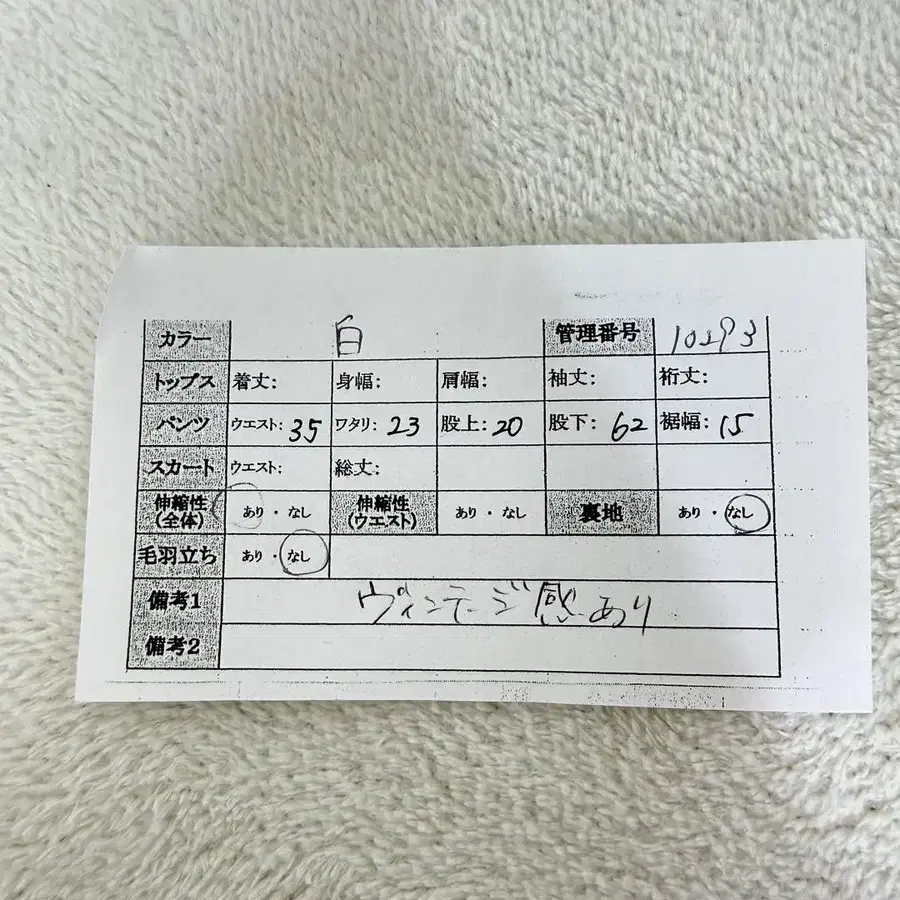 カラー 白 管理番号 10293
トップス 着丈: 身幅: 肩幅: 袖丈: 裄丈:
パンツ ウエスト: 35 ワタリ: 23 股上: 20 股下: 62 裾幅: 15
スカート ウエスト: 総丈:
伸縮性(全体) あり・なし 伸縮性(ウエスト) あり・なし 裏地 あり・なし
毛羽立ち あり・なし
備考1 ヴィンテージ感あり
備考2